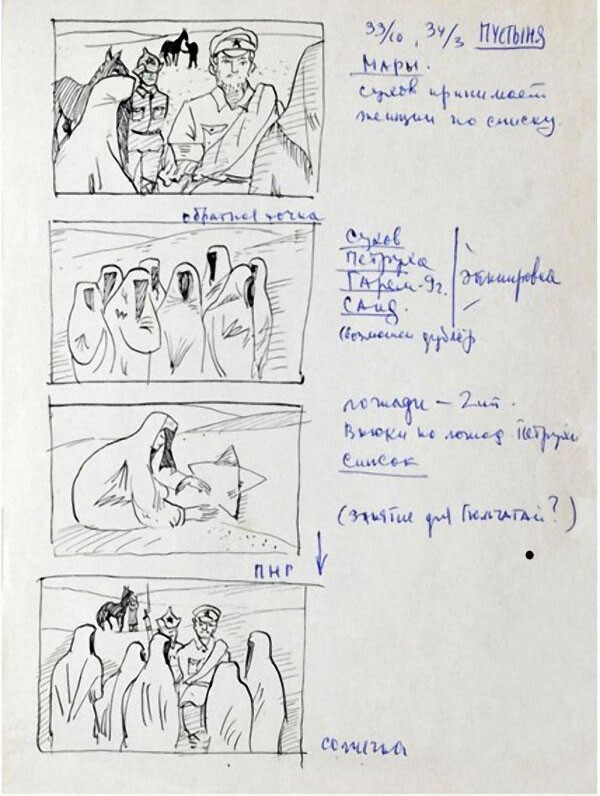 33/10, 34/3 ПУСТЫНЯ
МАРЫ.
Сухов принимает
женщин по списку.
обратная точка
Сухов
Петруха
Гарем - 9 ч.
Саид.
экипировка
(возможен дублёр
лошади - 2 шт.
Вьюки на лошад. Петрухи
Список
(занятие для Гюльчатай?)
ПНР